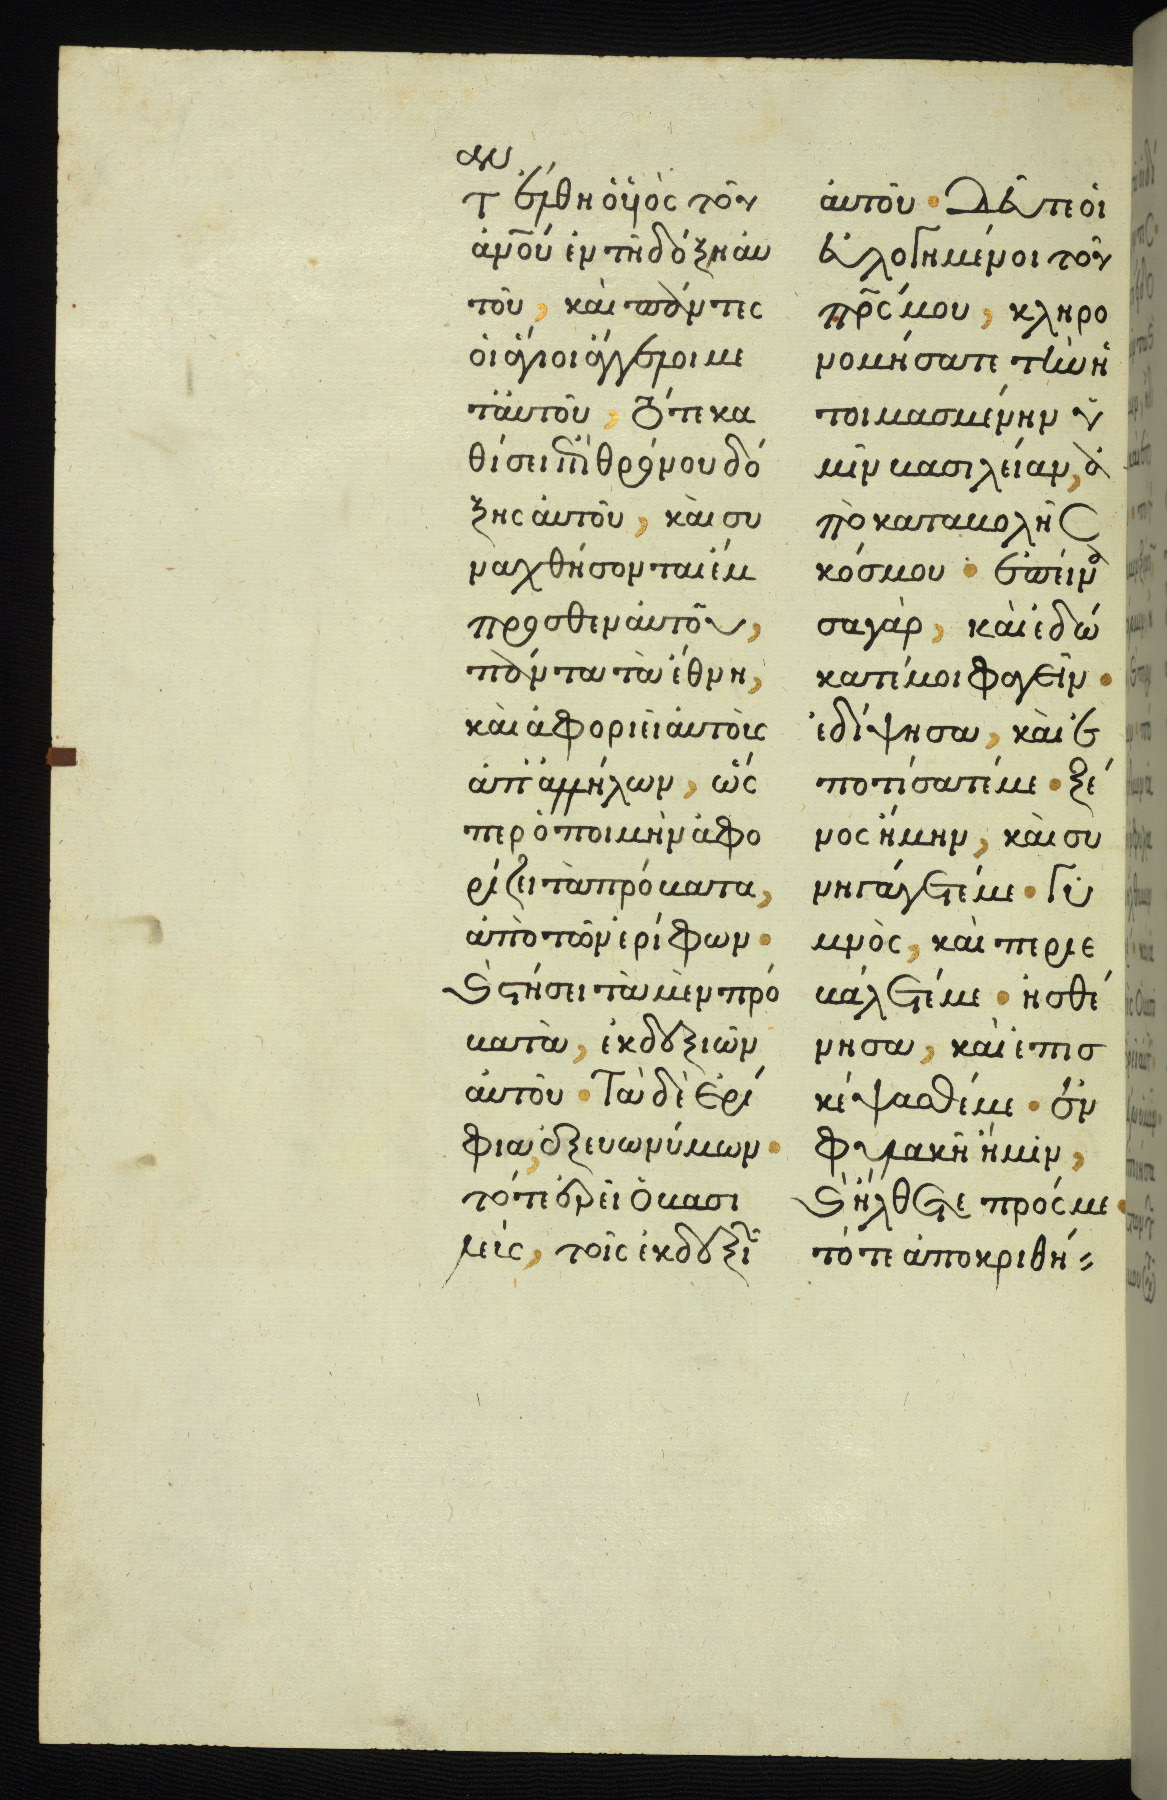 αν
τ ἔλθη ὁ ὑιὸς τοῦ
ἀνο̅υ ἐν τῆ δόξη ἀυ
τοῦ, καὶ πάντες
ὁι ἅγιοι ἄγγελοι με
τ' ἀυτοῦ, τότε κα
θίσει ἐπὶ θρόνου δό
ξης ἀυτοῦ, καὶ συ
ναχθήσονται ἔμ
προσθεν ἀυτοῦ,
πάντα τὰ ἔθνη,
καὶ ἀφοριεῖ ἀυτοὺς
ἀπ' ἀλλήλων, ὥσ
περ ὁ ποιμὴν ἀφο
ρίζει τὰ πρόβατα,
ἀπὸ τῶν ἐρίφων.
καὶ στήσει τὰ μὲν πρό
βατα, ἐκ δεξιῶν
ἀυτοῦ. Τὰ δὲ ἐρί
φια, ἐξ ευωνύμων.
τότε ἐρεῖ ὁ βασι
λεὺς, τοῖς ἐκ δεξιῶ̅
ἀυτοῦ. Δεῦτε ὁι
ἐυλογημένοι τοῦ
πρ̅ς μου, κληρο
νομήσατε τὴν ἡ
τοιμασμένην ὑ
μῖν βασιλείαν, ἀ
πὸ καταβολῆς
κόσμου. ἐπείνα
σα γὰρ, καὶ ἐδώ
κατέ μοι φαγεῖν.
ἐδίψησα, καὶ ἐ
ποτίσατέ με. ξέ
νος ἤμην, καὶ συ
νηγάγετέ με. Γυ
μνὸς, καὶ περιε
βάλετέ με. ἠσθέ
νησα, καὶ ἐπισ
κέψασθέ με. ἐν
φυλακῆ ἤμην,
καὶ ἤλθετε πρός με.
τότε ἀποκριθή-